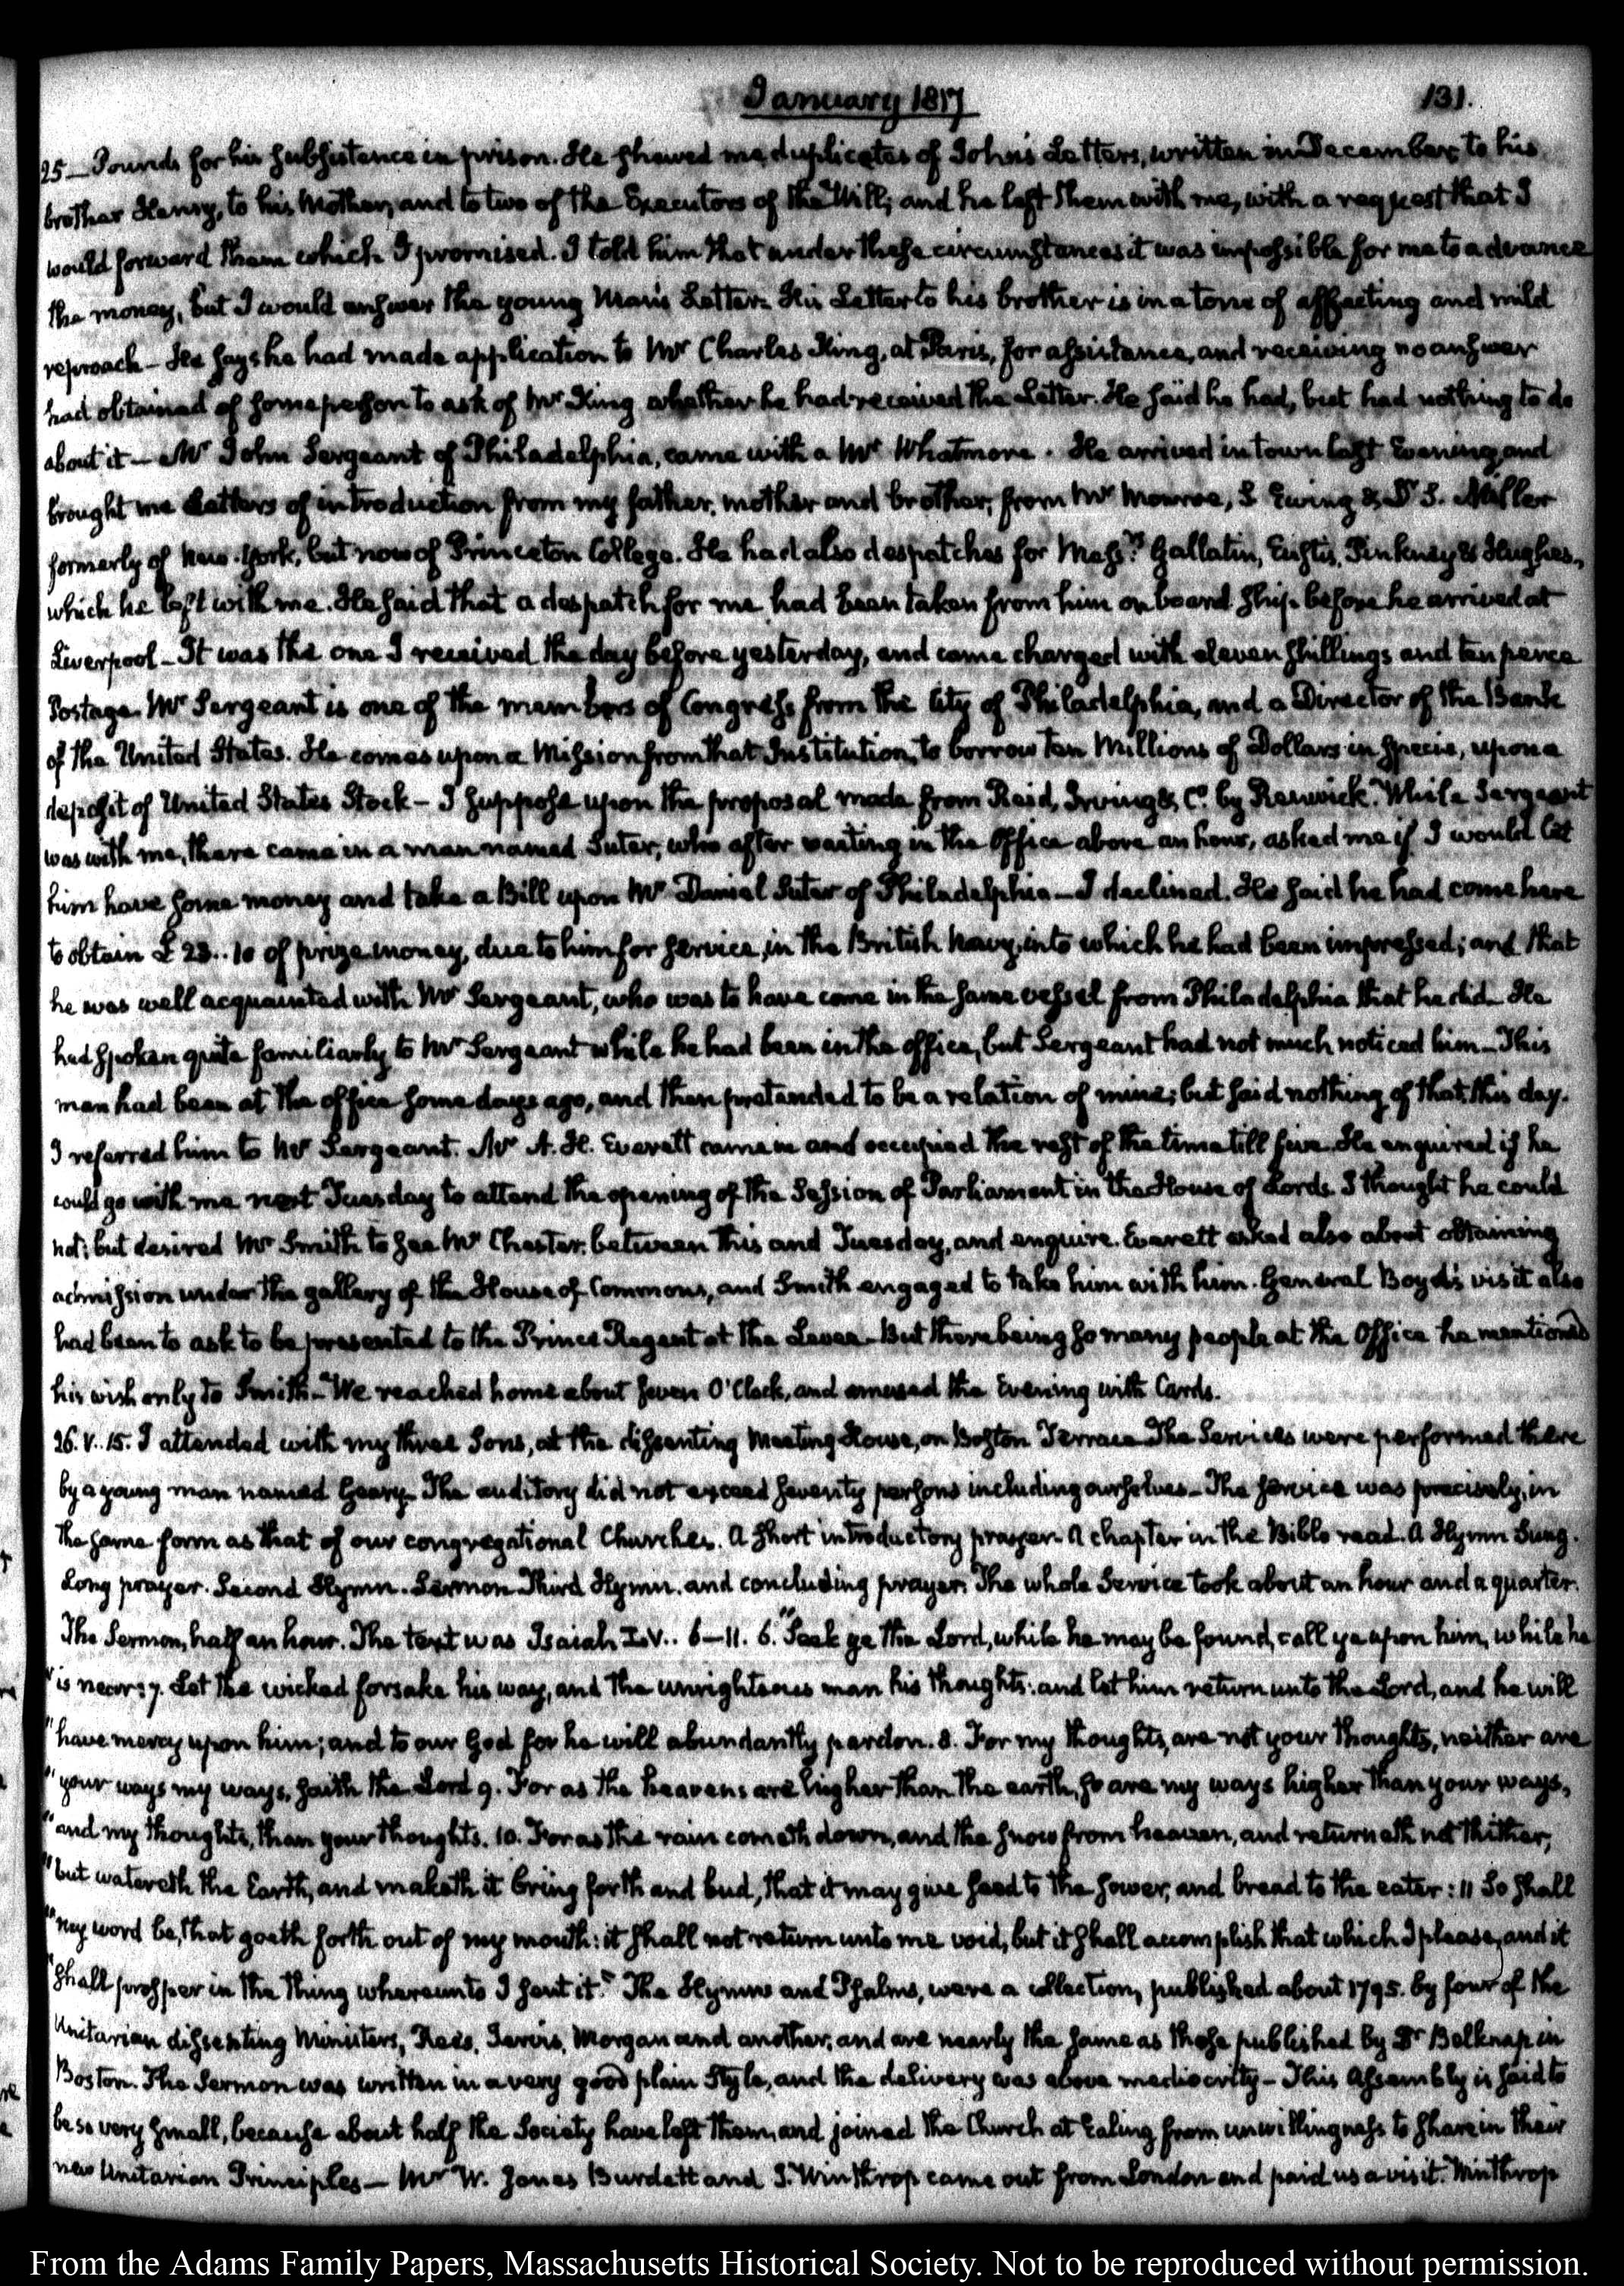 January 1817
131.
25 — Pounds for his subsistence in prison. He shewed me duplicates of John's Letters, written in December, to his
brother Henry, to his Mother, and to two of the Executors of the Will; and he left them with me, with a request that I
would forward them which I promised. I told him that under these circumstances it was impossible for me to advance
the money, but I would answer the young Man's Letter. His Letter to his brother is in a tone of affecting and mild
reproach — He says he had made application to Mr Charles King, at Paris, for assistance, and receiving no answer
had obtained of some person to ask of Mr King whether he had received the Letter. He said he had, but had nothing to do
about it — Mr John Sergeant of Philadelphia, came with a Mr Whatmore. He arrived in town last Evening and
brought me Letters of introduction from my father, mother and brother, from Mr Monroe, S Ewing & Dr S. Miller
formerly of New-York, but now of Princeton College. He had also despatches for Messrs Gallatin, Eustis, Pinkney & Hughes,
which he left with me. He said that a despatch for me had been taken from him on board ship before he arrived at
Liverpool — It was the one I received the day before yesterday, and came charged with eleven shillings and ten pence
Postage. Mr Sergeant is one of the members of Congress from the City of Philadelphia, and a Director of the Bank
of the United States. He comes upon a Mission from that Institution, to borrow ten Millions of Dollars in specie, upon a
deposit of United States Stock — I suppose upon the proposal made from Reid, Irving & Co. by Renwick. While Sergeant
was with me, there came in a man named Suter, who after waiting in the Office above an hour, asked me if I would let
him have some money and take a Bill upon Mr Daniel Suter of Philadelphia — I declined. He said he had come here
to obtain £ 23..10 of prize money, due to him for service, in the British Navy, into which he had been impressed; and that
he was well acquainted with Mr Sergeant, who was to have come in the same vessel from Philadelphia that he did — He
had spoken quite familiarly to Mr Sergeant while he had been in the office, but Sergeant had not much noticed him — This
man had been at the office some days ago, and then pretended to be a relation of mine; but said nothing of that this day.
I referred him to Mr Sergeant. Mr A. H. Everett came in and occupied the rest of the time till five. He enquired if he
could go with me next Tuesday to attend the opening of the Session of Parliament in the House of Lords. I thought he could
not; but desired Mr Smith to see Mr Chester, between this and Tuesday, and enquire. Everett asked also about obtaining
admission under the gallery of the House of Commons, and Smith engaged to take him with him. General Boyd's visit also
had been to ask to be presented to the Prince Regent at the Levee — But there being so many people at the Office he mentioned
his wish only to Smith — We reached home about seven O'Clock, and amused the Evening with Cards.
26. V..15. I attended with my three Sons, at the dissenting Meeting House, on Boston Terrace The Services were performed there
by a young man named Geary — The auditory did not exceed seventy persons including ourselves — The service was precisely in
the same form as that of our congregational Churches. A short introductory prayer — A chapter in the Bible read. A Hymn Sung.
Long prayer. Second Hymn. Sermon Third Hymn. and concluding prayer. The whole Service took about an hour and a quarter.
The Sermon, half an hour. The text was Isaiah LV.. 6—11. 6. "Seek ye the Lord, while he may be found, call ye upon him, while he
"is near: 7. Let the wicked forsake his way, and the unrighteous man his thoughts: and let him return unto the Lord, and he will
"have mercy upon him; and to our God for he will abundantly pardon. 8. For my thoughts, are not your thoughts, neither are
"your ways my ways, saith the Lord 9. For as the heavens are higher than the earth, so are my ways higher than your ways,
"and my thoughts, than your thoughts. 10. For as the rain cometh down, and the snow from heaven, and returneth not thither,
"but watereth the Earth, and maketh it bring forth and bud, that it may give seed to the sower, and bread to the eater: 11 So shall
"my word be, that goeth forth out of my mouth: it shall not return unto me void, but it shall accomplish that which I please, and it
"shall prosper in the thing whereunto I sent it." The Hymns and Psalms, were a collection, published about 1795. by four of the
Unitarian dissenting Ministers, Rees, Jervis, Morgan and another; and are nearly the same as those published by Dr Belknap in
Boston. The Sermon was written in a very good plain Style, and the delivery was above mediocrity — This Assembly is said to
be so very small, because about half the Society have left them, and joined the Church at Ealing from unwillingness to share in their
new Unitarian Principles — Mr W. Jones Burdett and J. Winthrop came out from London and paid us a visit. Winthrop
From the Adams Family Papers, Massachusetts Historical Society. Not to be reproduced without permission.